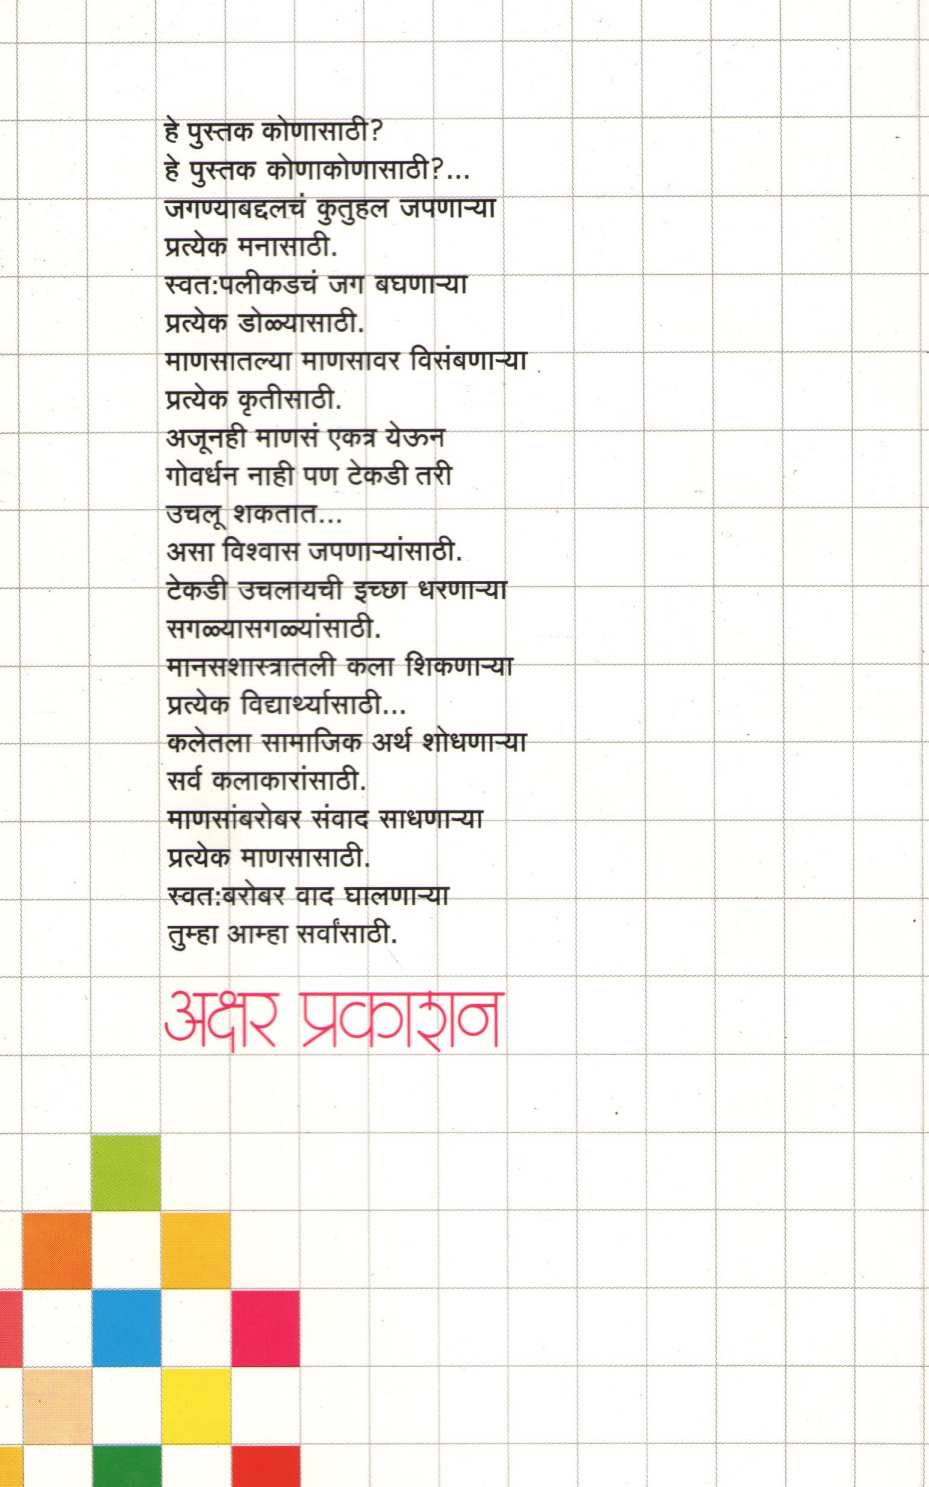 हे पुस्तक कोणासाठी?
हे पुस्तक कोणाकोणासाठी?...
जगण्याबद्दलचं कुतुहल जपणाऱ्या
प्रत्येक मनासाठी.
स्वत:पलीकडचं जग बघणाऱ्या
प्रत्येक डोळ्यासाठी.
माणसातल्या माणसावर विसंबणाऱ्या
प्रत्येक कृतीसाठी.
अजूनही माणसं एकत्र येऊन
गोवर्धन नाही पण टेकडी तरी
उचलू शकतात...
असा विश्वास जपणाऱ्यांसाठी.
टेकडी उचलायची इच्छा धरणाऱ्या
सगळ्यासगळ्यांसाठी.
मानसशास्त्रातली कला शिकणाऱ्या
प्रत्येक विद्यार्थ्यासाठी...
कलेतला सामाजिक अर्थ शोधणाऱ्या
सर्व कलाकारांसाठी.
माणसांबरोबर संवाद साधणाऱ्या
प्रत्येक माणसासाठी.
स्वत:बरोबर वाद घालणाऱ्या
तुम्हा आम्हा सर्वांसाठी.
अक्षर प्रकाशन